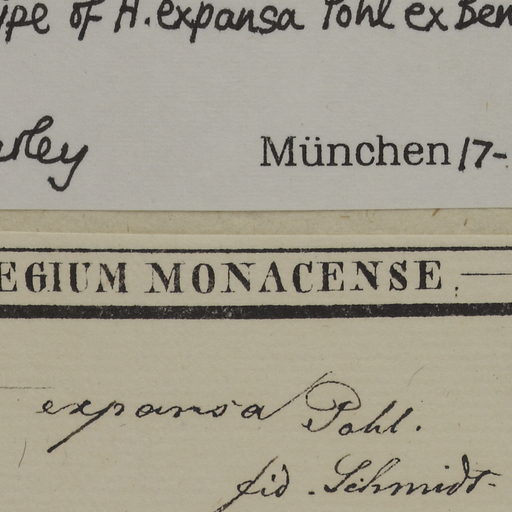 ype of H. expansa Pohl ex Ben
rley
München 17-
EGIUM MONACENSE
expansa Pohl.
fid. Schmidt.